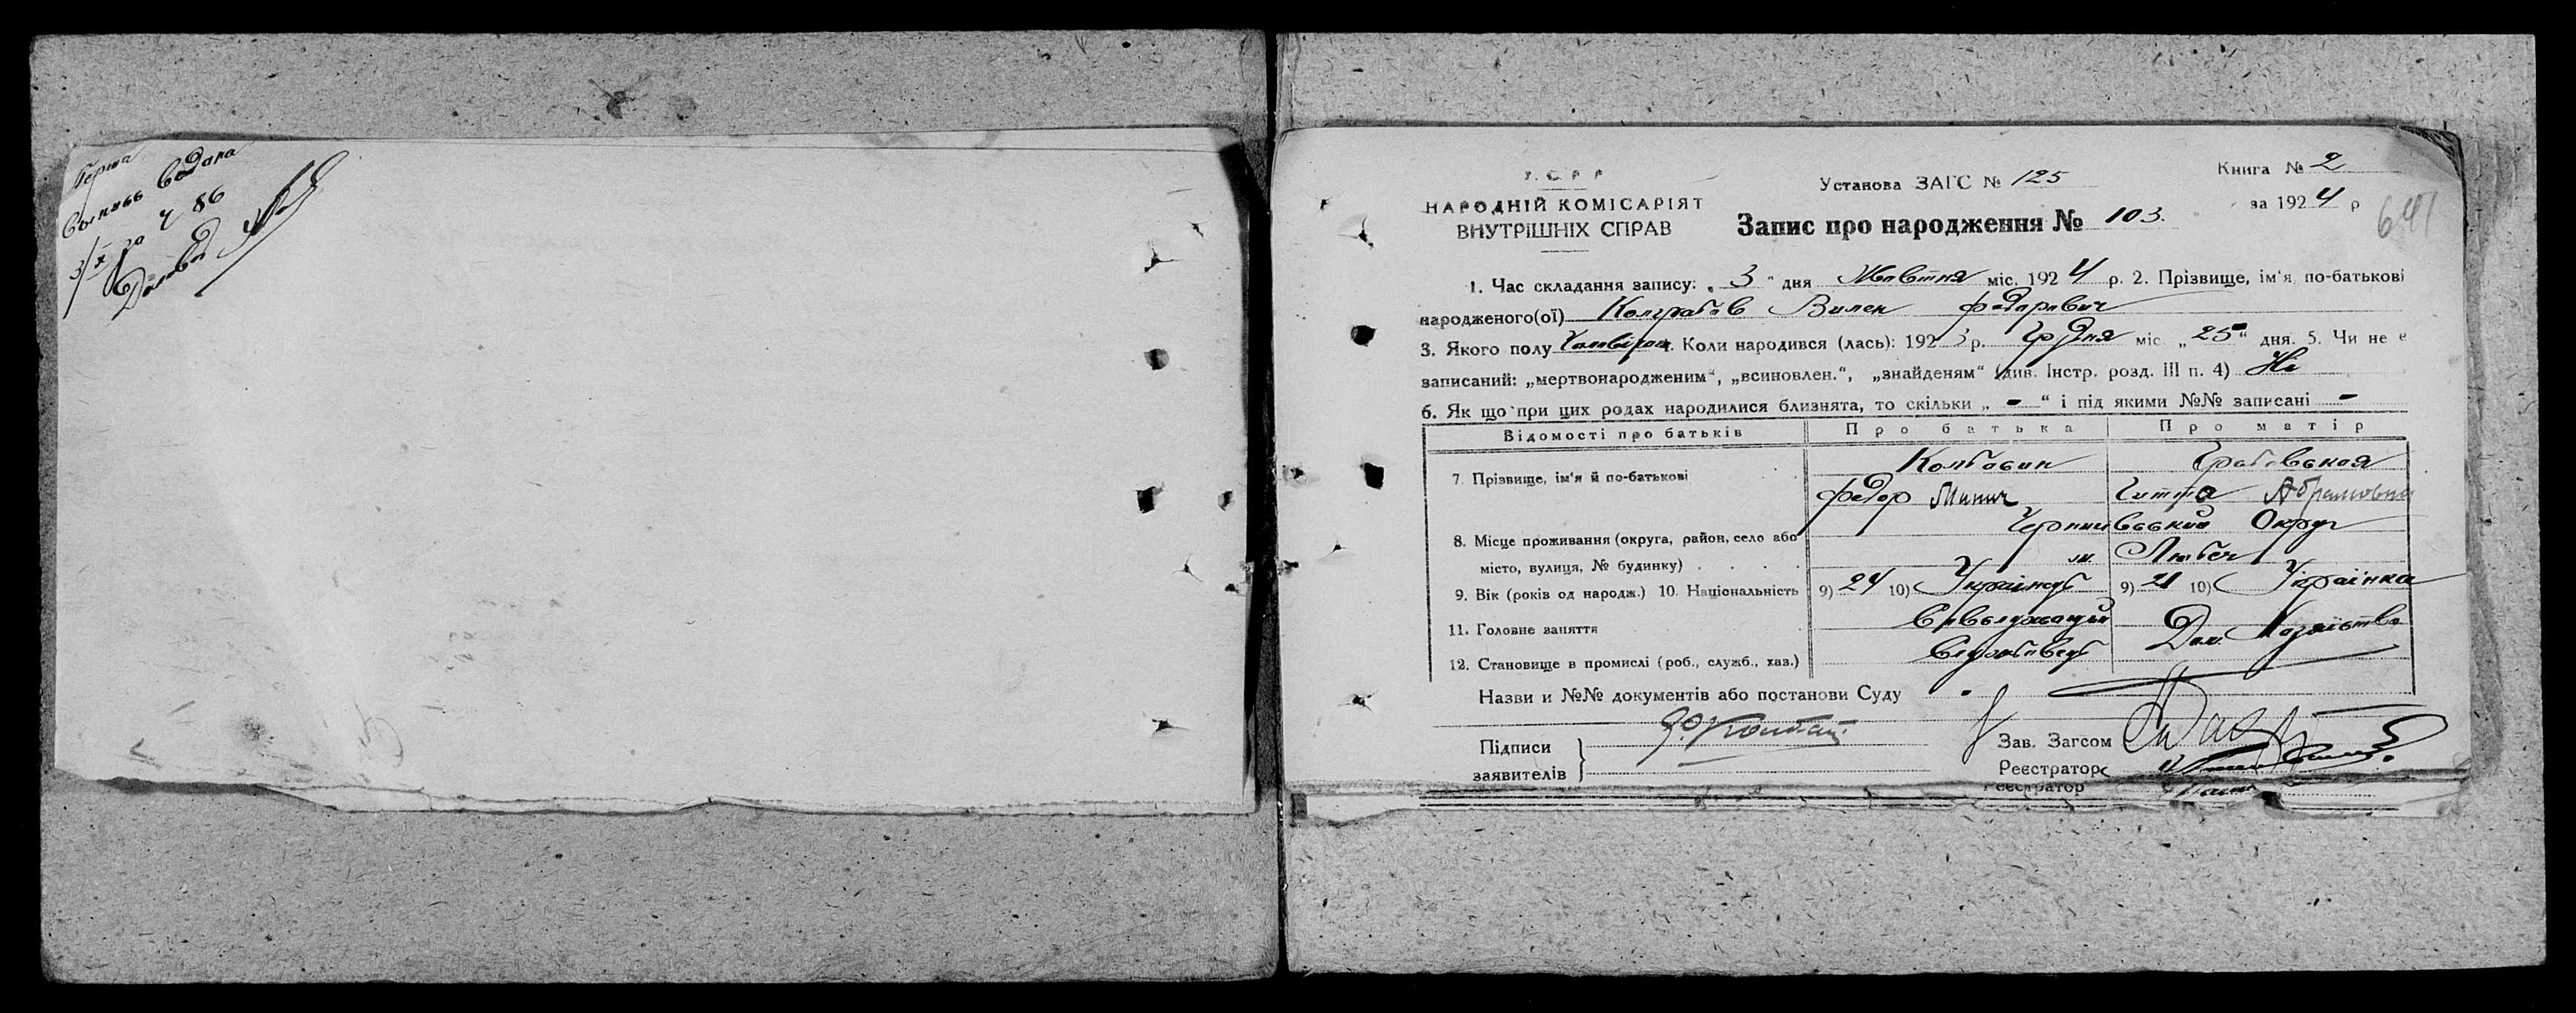 Перша
Випись видана
3/X за Ч 86
У.С.Р.Р.
НАРОДНІЙ КОМІСАРІЯТ
ВНУТРІШНІХ СПРАВ
Установа ЗАГС № 125
Книга № 2
за 1924 р
641
Запис про народження № 103.
1. Час складання запису: „ 3 “ дня Жовтня міс. 1924 р. 2. Прізвище, ім'я, по-батькові
народженого(ої) Колграбов Вилен Федорович
3. Якого полу Чоловічої 4. Коли народився (лась): 1923 р. Грудня міс. „ 25 “ дня. 5. Чи не є
записаний: „мертвонародженим“, „всиновлен.“, „знайденям“ (див. Інстр. розд. III п. 4) Ні
6. Як що при цих родах народилися близнята, то скільки „ - “ і під якими №№ записані -
Відомості про батьків Про батька Про матір
7. Прізвище, ім'я й по-батькові Колбасин Грабовская
Федор Минич Гитта Абрамовна
8. Місце проживання (округа, район, село або Чернигівський Округ
місто, вулиця, № будинку) м. Любеч
9. Вік (років од народж.) 10. Національність 9) 24 10) Українець 9) 21 10) Українка
11. Головне заняття Дом. Хазяїство
12. Становище в промислі (роб., служб., хаз.) Службовець
Назви и №№ документів або постанови Суду
Підписи
заявителів
Зав. Загсом
Реєстратор
Реєстратор